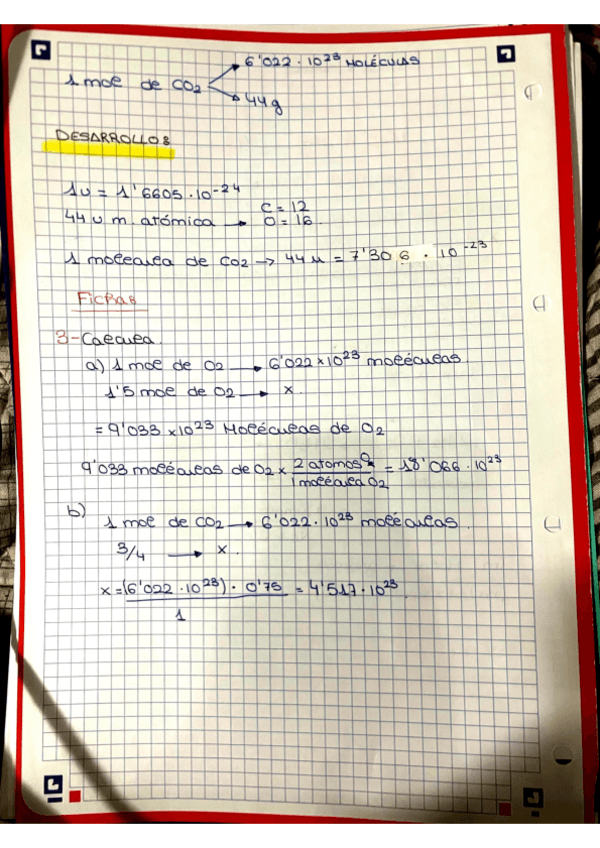 6'022 · 10²³ MOLÉCULAS
1 mol de CO₂
44g
DESARROLLO:
1u = 1'6605 · 10⁻²⁴
44 u m. atómica → C = 12
O = 16
1 molécula de CO₂ → 44 u = 7'306 · 10⁻²³
Fichas
3-Calcula.
a) 1 mol de O₂ → 6'022 × 10²³ moléculas.
1'5 mol de O₂ → x
= 9'033 × 10²³ Moléculas de O₂
9'033 moléculas de O₂ × 2 atomos O / 1 molécula O₂ = 18'066 · 10²³
b)
1 mol de CO₂ → 6'022 · 10²³ moléculas.
3/4 → x.
x = (6'022 · 10²³) · 0'75 / 1 = 4'517 · 10²³